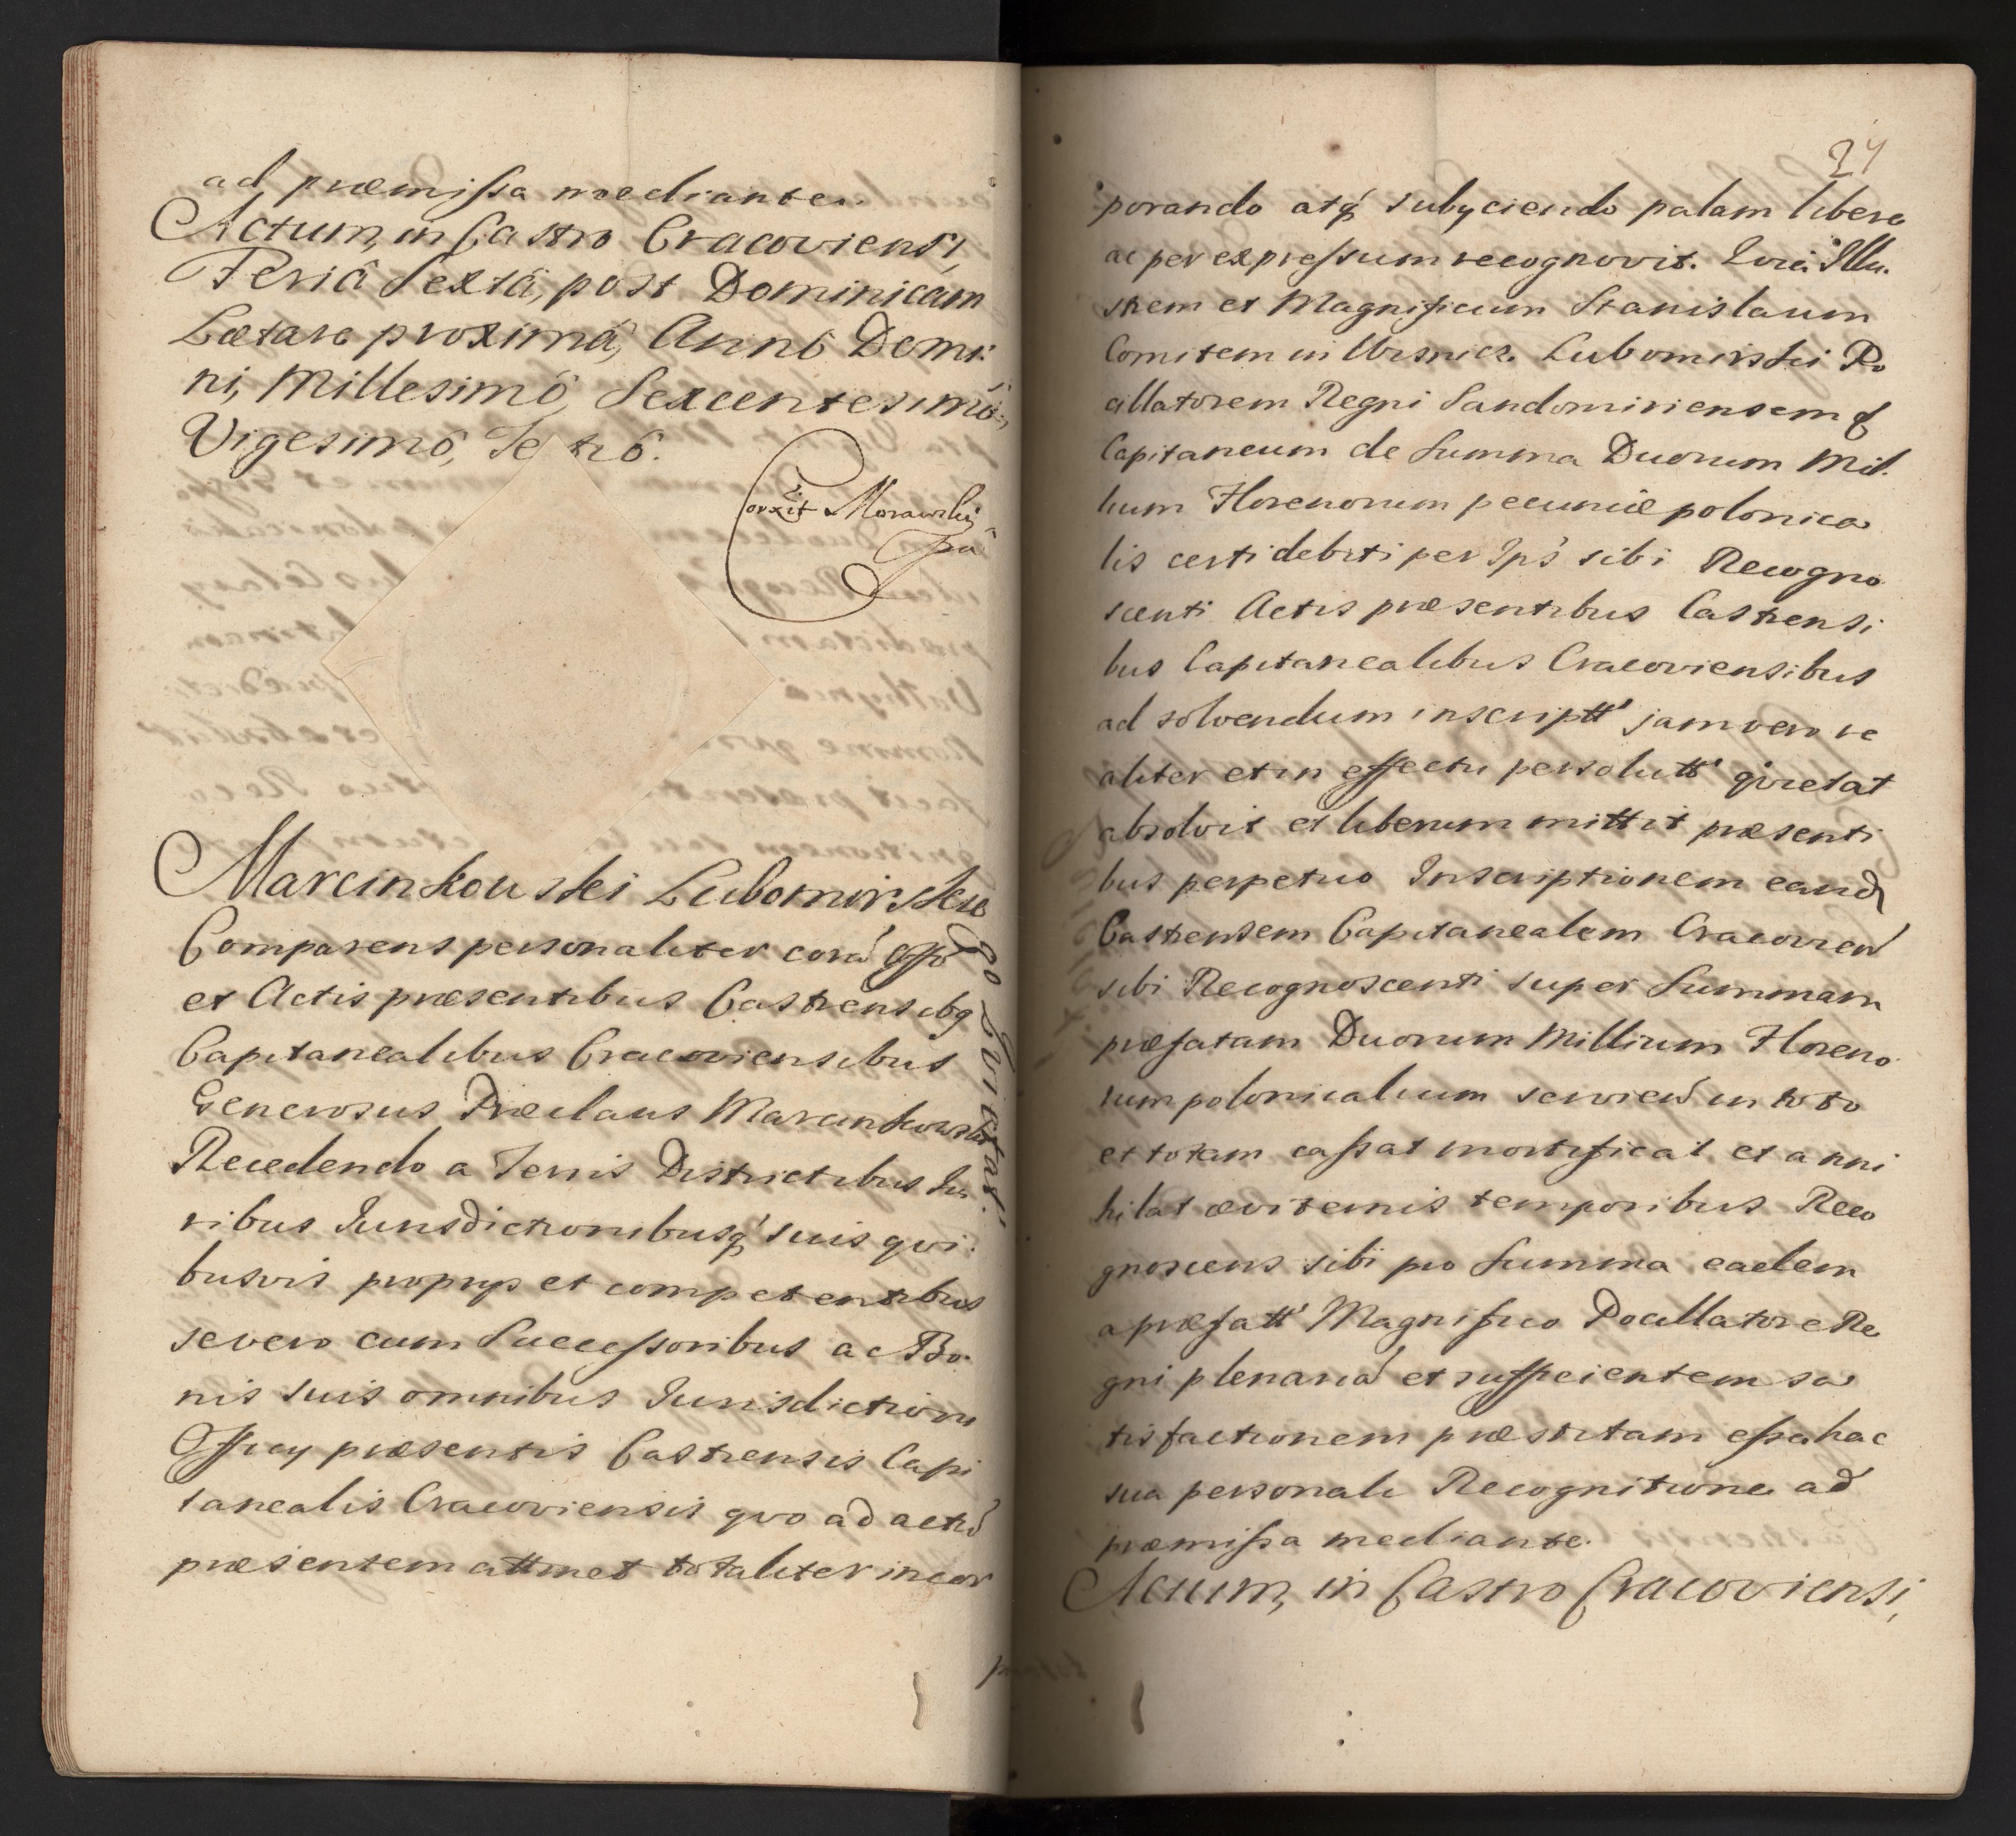 ad præmissa mediante.
Actum, in Castro Cracoviensi,
Feriâ Sextâ, post Dominicam
Lætare proximâ, Annô Domi:
ni, Millesimô, Sexcentesimô,
Vigesimô,
Corxit Morawski
Marcinkowski Lubomirskie
Comparens personaliter corã Offõ
et Actis præsentibus Castrensibq
Capitanealibus Cracoviensibus
Generosus Præclaus Marcinkowski
Recedendo a Terris Districtibus Iu
ribus Iurisdictionibusq' suis qvi:
busvis proprys et competentibus
se vero cum Successoribus ac Bo-
nis suis omnibus Iurisdictioni
Officy præsentis Castrensis Capi
tanealis Cracoviensis qvo ad actũ
præsentem attinet totaliter incor
Qvietat.
24
porando atq' subyciendo palam libere
ac per expressum recognovit. Qvia Illu-
strem et Magnificum Stanislaum
Comitem in Wisnicz Lubomirski Po
cillatorem Regni Sandomiriensem q
Capitaneum de Summa Duorum Mil-
lium Florenorum pecuniæ polonica
lis certi debiti per Ips' sibi Recogno
scenti Actis præsentibus Castrensi
bus Capitanealibus Cracoviensibus
ad solvendum inscriptt' jam vero re
aliter et in effectu persolutt' qvietat
absolvit et liberum mittit præsenti
bus perpetuo Inscriptionem eand
Castrensem Capitanealem Cracovien
sibi Recognoscenti super Summam
præfatam Duorum Millium Floreno
rum polonicalium servien in toto
et totam cassat mortificat et anni
hilat æviternis temporibus Reco
gnoscens sibi pro Summa eadem
a præfatt' Magnifico Pocillatore Re
gni plenariã et sufficientem sa
tisfactionem præstitam esse hac
sua personali Recognitione ad
præmissa mediante.
Actum, in Castro Cracoviensi,